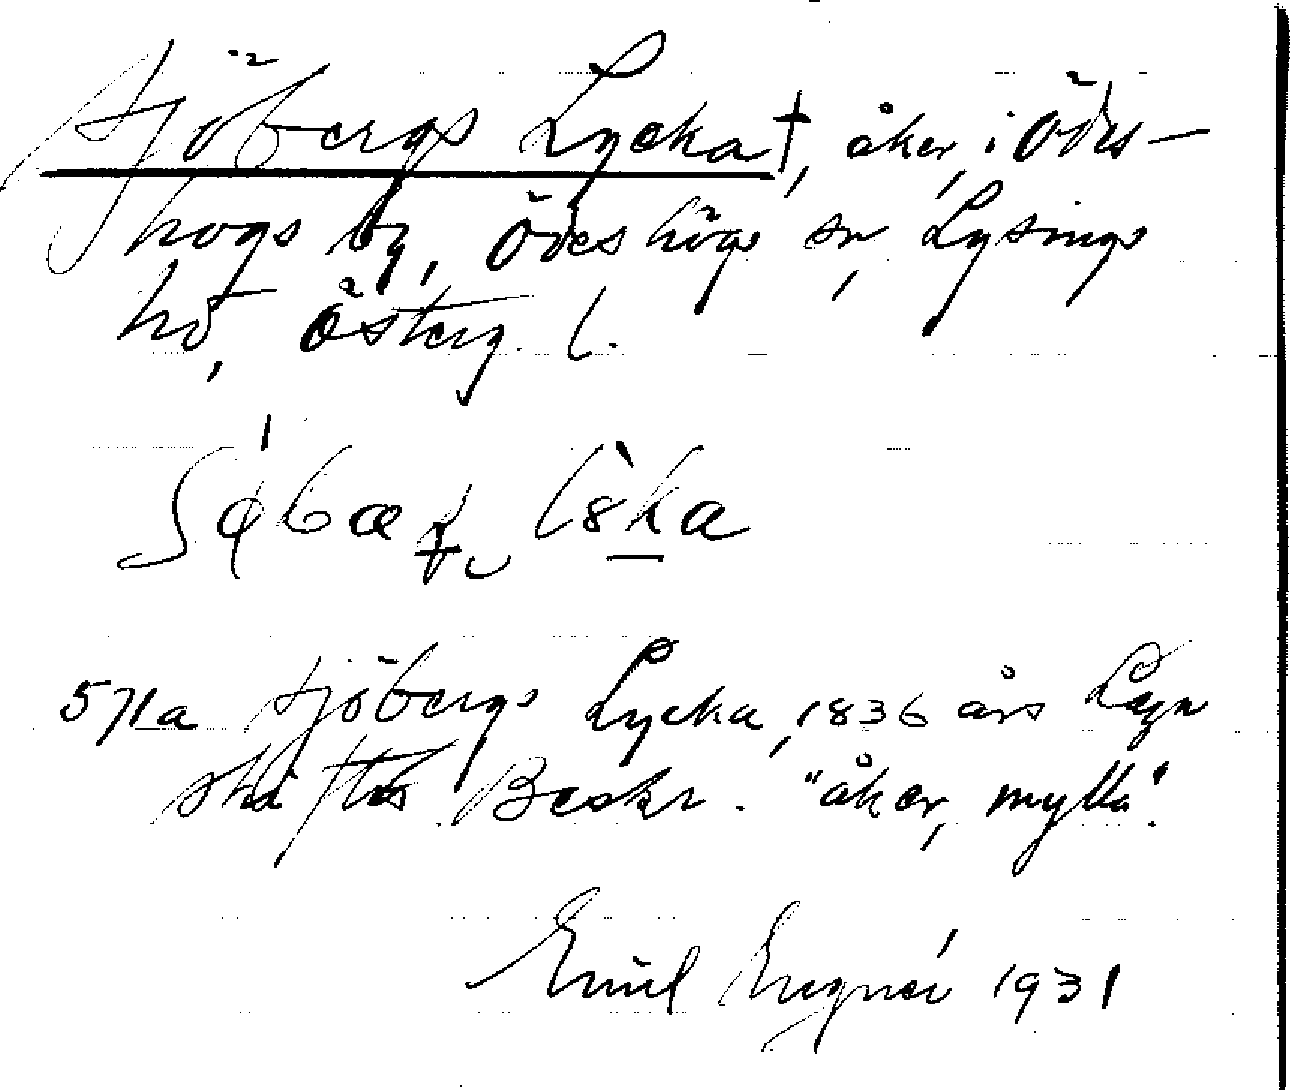 Sjöbergs Lycka †, åker, i Ödes-
högs by, Ödeshögs sn, Lysings
hd, Österg. l.
571a Sjöbergs Lycka, 1836 års Laga
skiftes Beskr. "åker, mylla".
Emil 1931